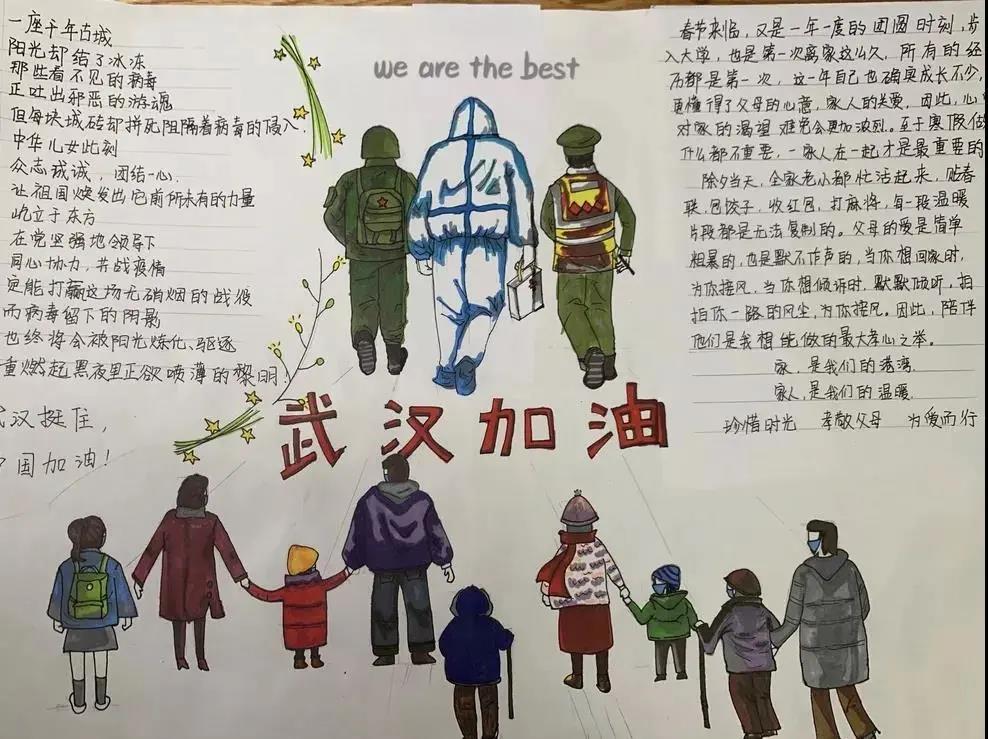 一座千年古城
阳光却结了冰冻
那些看不见的病毒
正吐出邪恶的游魂
但每块城砖却拼死阻隔着病毒的侵入
中华儿女此刻
众志诚诚，团结一心，
让祖国焕发出它前所未有的力量
屹立于东方
在党坚强地领导下
同心协力，共战疫情
定能打赢这场无硝烟的战役
而病毒留下的阴影
也终将会被阳光炼化、驱逐
重燃起黑夜里正欲喷薄的黎明！
武汉挺住，
中国加油！
we are the best
武汉加油
春节来临，又是一年一度的团圆时刻，步
入大学，也是第一次离家这么久，所有的经
历都是第一次，这一年自己也确实成长不少，
更懂得了父母的心意，家人的关爱，因此，心中
对家的渴望难免会更加浓烈。至于寒假做
什么都不重要，一家人在一起才是最重要的
除夕当天，全家老小都忙活起来，贴春
联，包饺子，收红包，打麻将，每一段温暖
片段都是无法复制的。父母的爱是简单
粗暴的，也是默不作声的，当你想回家时，
为你接风，当你想倾诉时，默默倾听，拍
拍你一路的风尘，为你接风。因此，陪伴
他们是我想能做的最大孝心之举。
家，是我们的港湾，
家人，是我们的温暖，
珍惜时光 孝敬父母 为爱而行